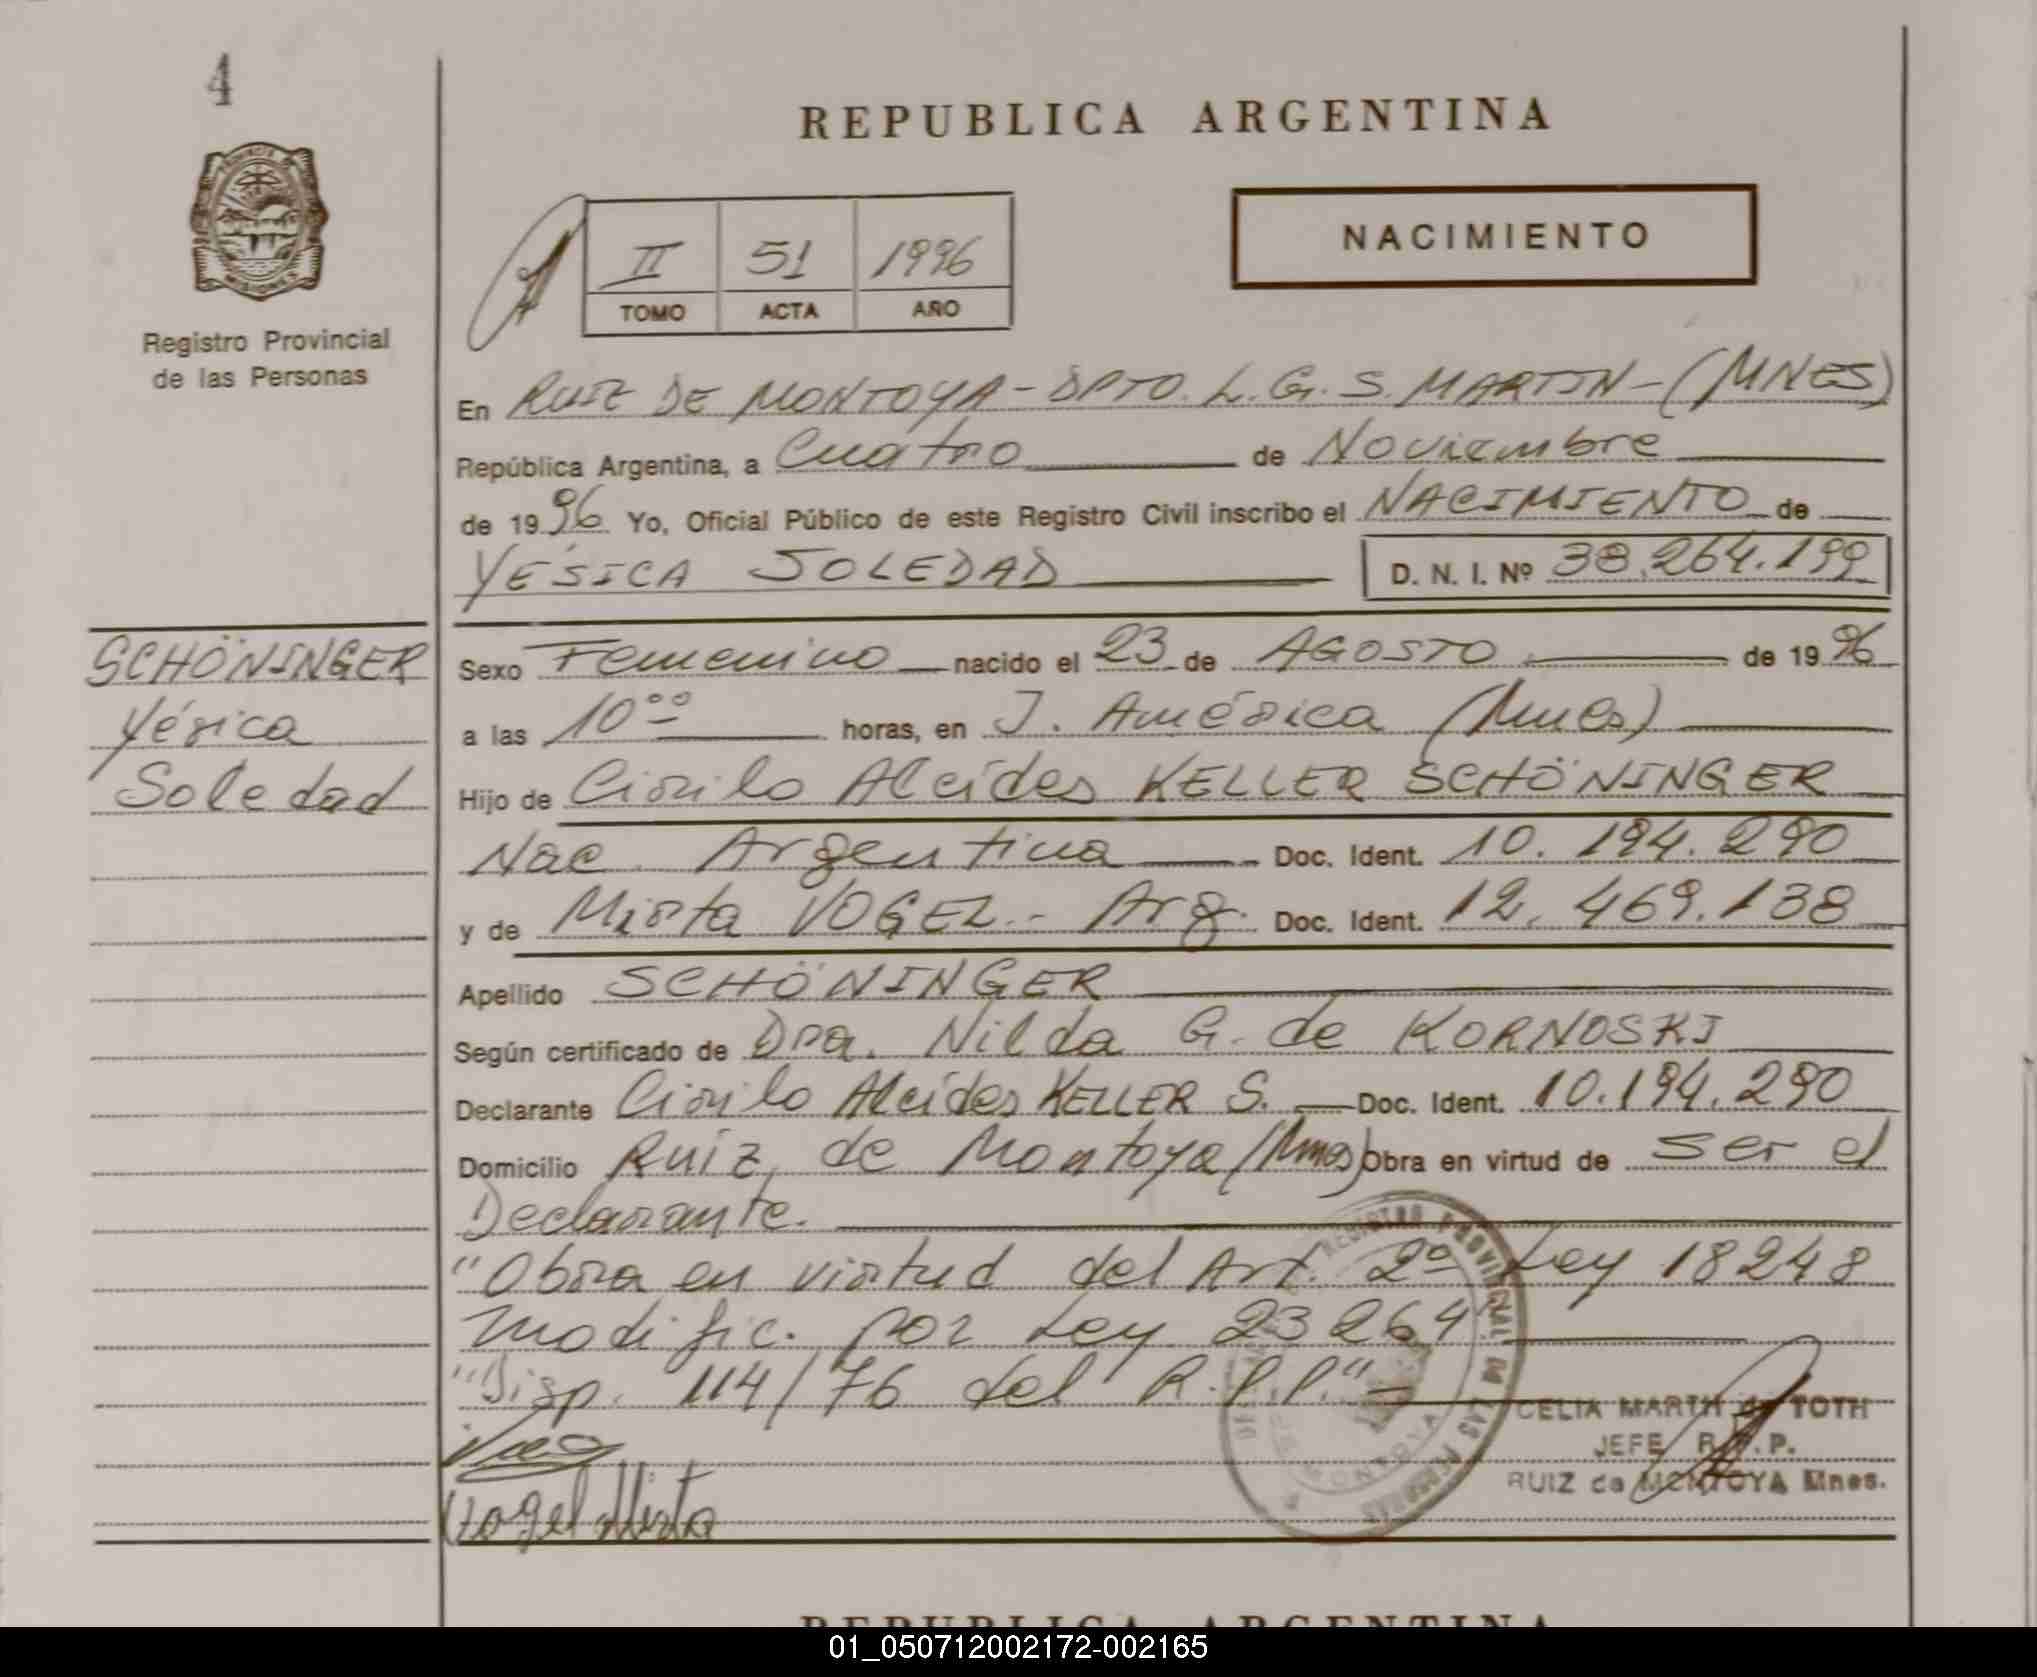 4
REPUBLICA ARGENTINA
PROVINCIA DE
MISIONES
Registro Provincial
de las Personas
II 51 1996
TOMO ACTA AÑO
NACIMIENTO
En RUIZ DE MONTOYA - DPTO. L. G. S. MARTIN - (MNES)
República Argentina, a Cuatro de Noviembre
de 1996 Yo, Oficial Público de este Registro Civil inscribo el NACIMIENTO de
YÉSICA SOLEDAD D. N. I. Nº 38.264.199
SCHÖNINGER
Yésica
Soledad
Sexo Femenino nacido el 23 de AGOSTO de 1996
a las 10ºº horas, en J. América (Mnes)
Hijo de Cirilo Alcídes KELLER SCHÖNINGER
Nac. Argentina Doc. Ident. 10.194.290
y de Mirta VOGEL - Arg. Doc. Ident. 12.469.138
Apellido SCHÖNINGER
Según certificado de Dra. Nilda G. de KORNOSKI
Declarante Cirilo Alcídes KELLER S. Doc. Ident. 10.194.290
Domicilio Ruiz de Montoya (Mnes) Obra en virtud de ser el
Declarante.
"Obra en virtud del Art. 2º Ley 18248
modific. por Ley 23264
"Disp. 114/76 del R.P.P."
REGISTRO PROVINCIAL DE LAS PERSONAS
MONTOYA
CELIA MARTA de TOTH
JEFE R.P.P.
RUIZ de MONTOYA Mnes.
Vogel Mirta
REPUBLICA ARGENTINA
01_050712002172-002165